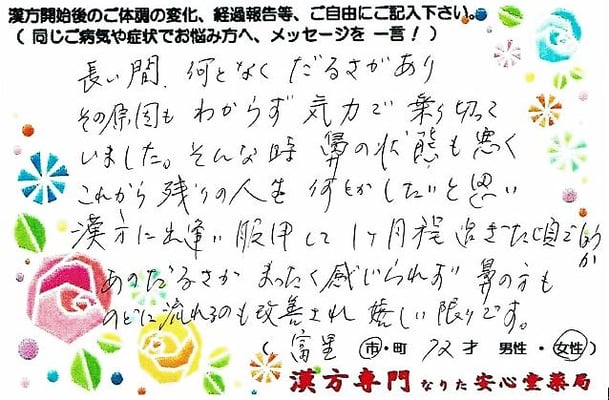 漢方開始後のご体調の変化、経過報告等、ご自由にご記入下さい。
（ 同じご病気や症状でお悩み方へ、メッセージを 一言！）
長い間、何となく だるさがあり
その原因も わからず 気力で 乗り切って
いました。そんな時 鼻の状態も悪く
これから 残りの人生 何とかしたいと思い
漢方に出逢い 服用して 1ヶ月程 過ぎた頃でしょうか
あのだるさが まったく感じられず 鼻の方も
のどに流れるのも改善され 嬉しい限りです。
（ 富里 市・町 72才 男性・女性）
漢方専門 なりた 安心堂薬局